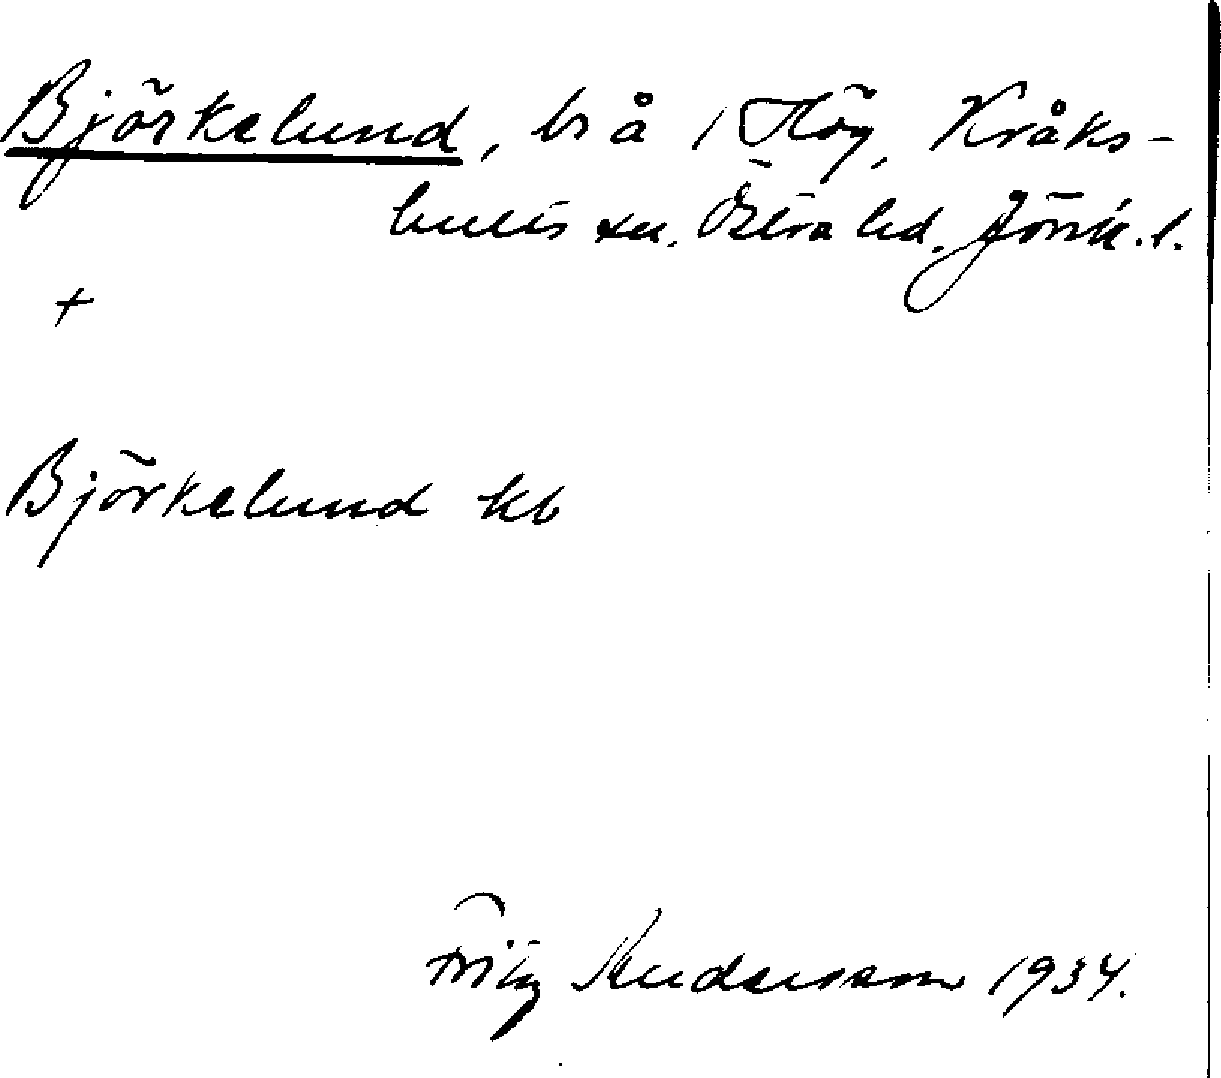 Björkelund, bs å 1 Hög, Kråks-
hults sn. Östra hd. Jönk. l.
+
Björkelund kb
Fritz Andersson 1934.